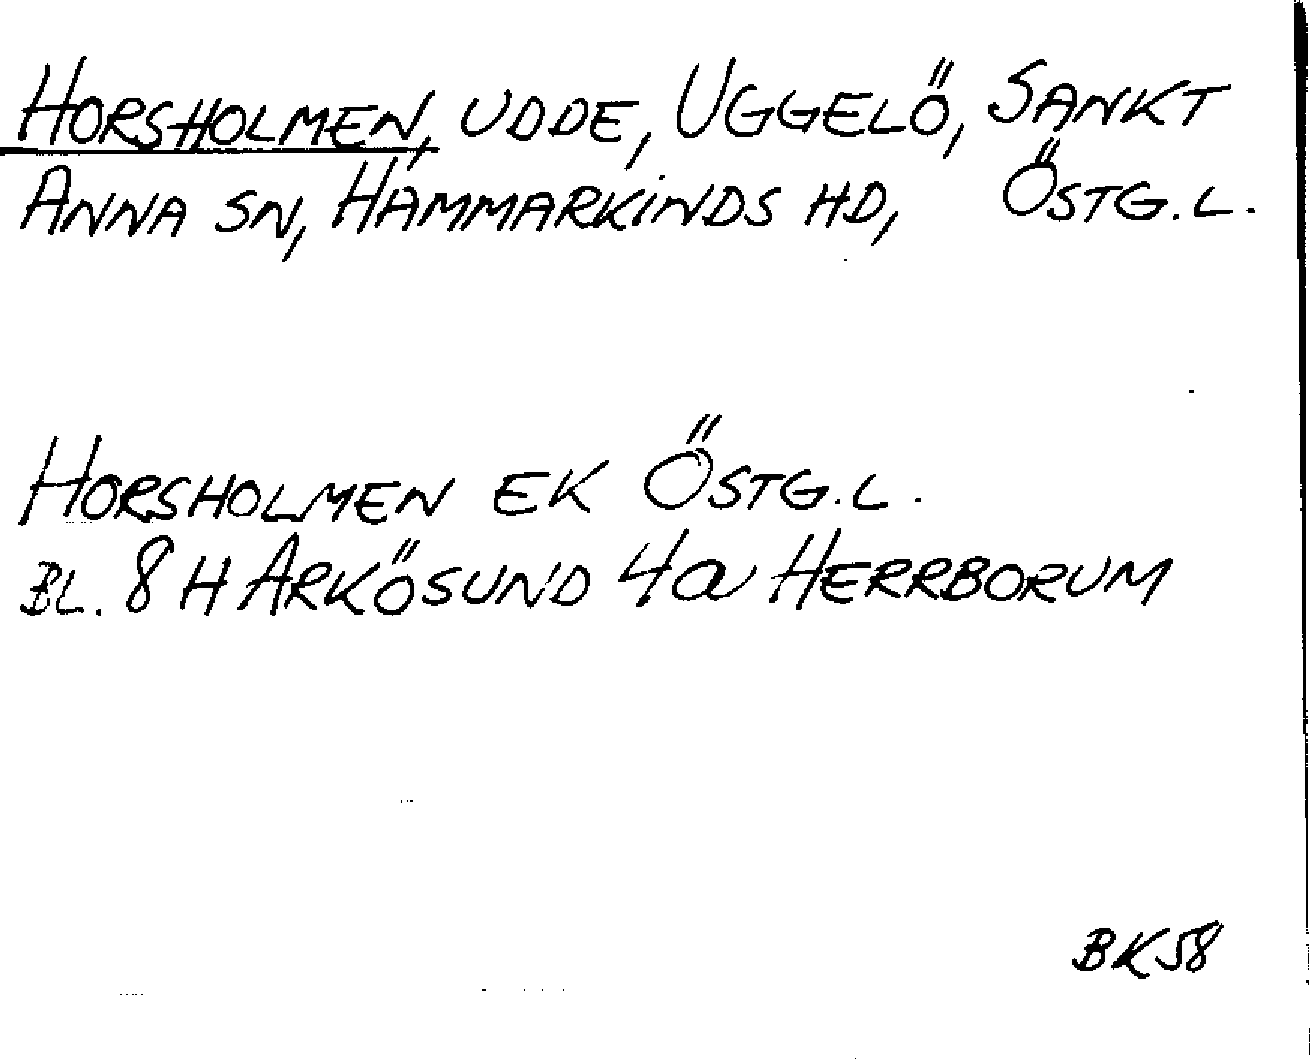 HORSHOLMEN, UDDE, UGGELÖ, SANKT
ANNA SN, HAMMARKINDS HD, ÖSTG.L.
HORSHOLMEN EK ÖSTG.L.
BL. 8 H ARKÖSUND 4a HERRBORUM
BK58